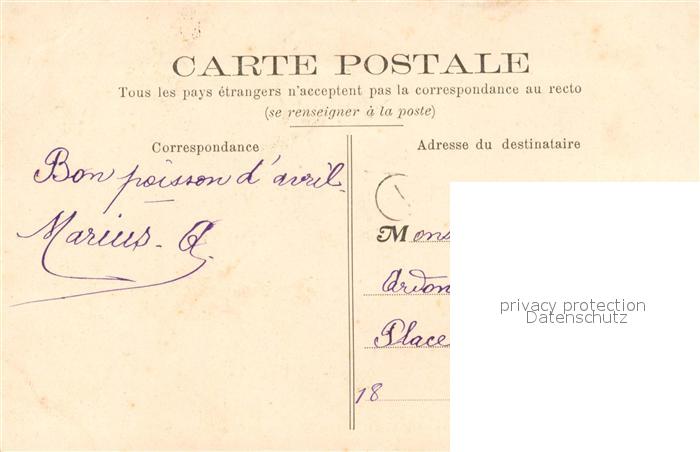 CARTE POSTALE
Tous les pays étrangers n'acceptent pas la correspondance au recto
(se renseigner à la poste)
Correspondance
Bon poisson d'avril.
Marius. A.
Adresse du destinataire
Mons
Ardon
Place
18
privacy protection
Datenschutz